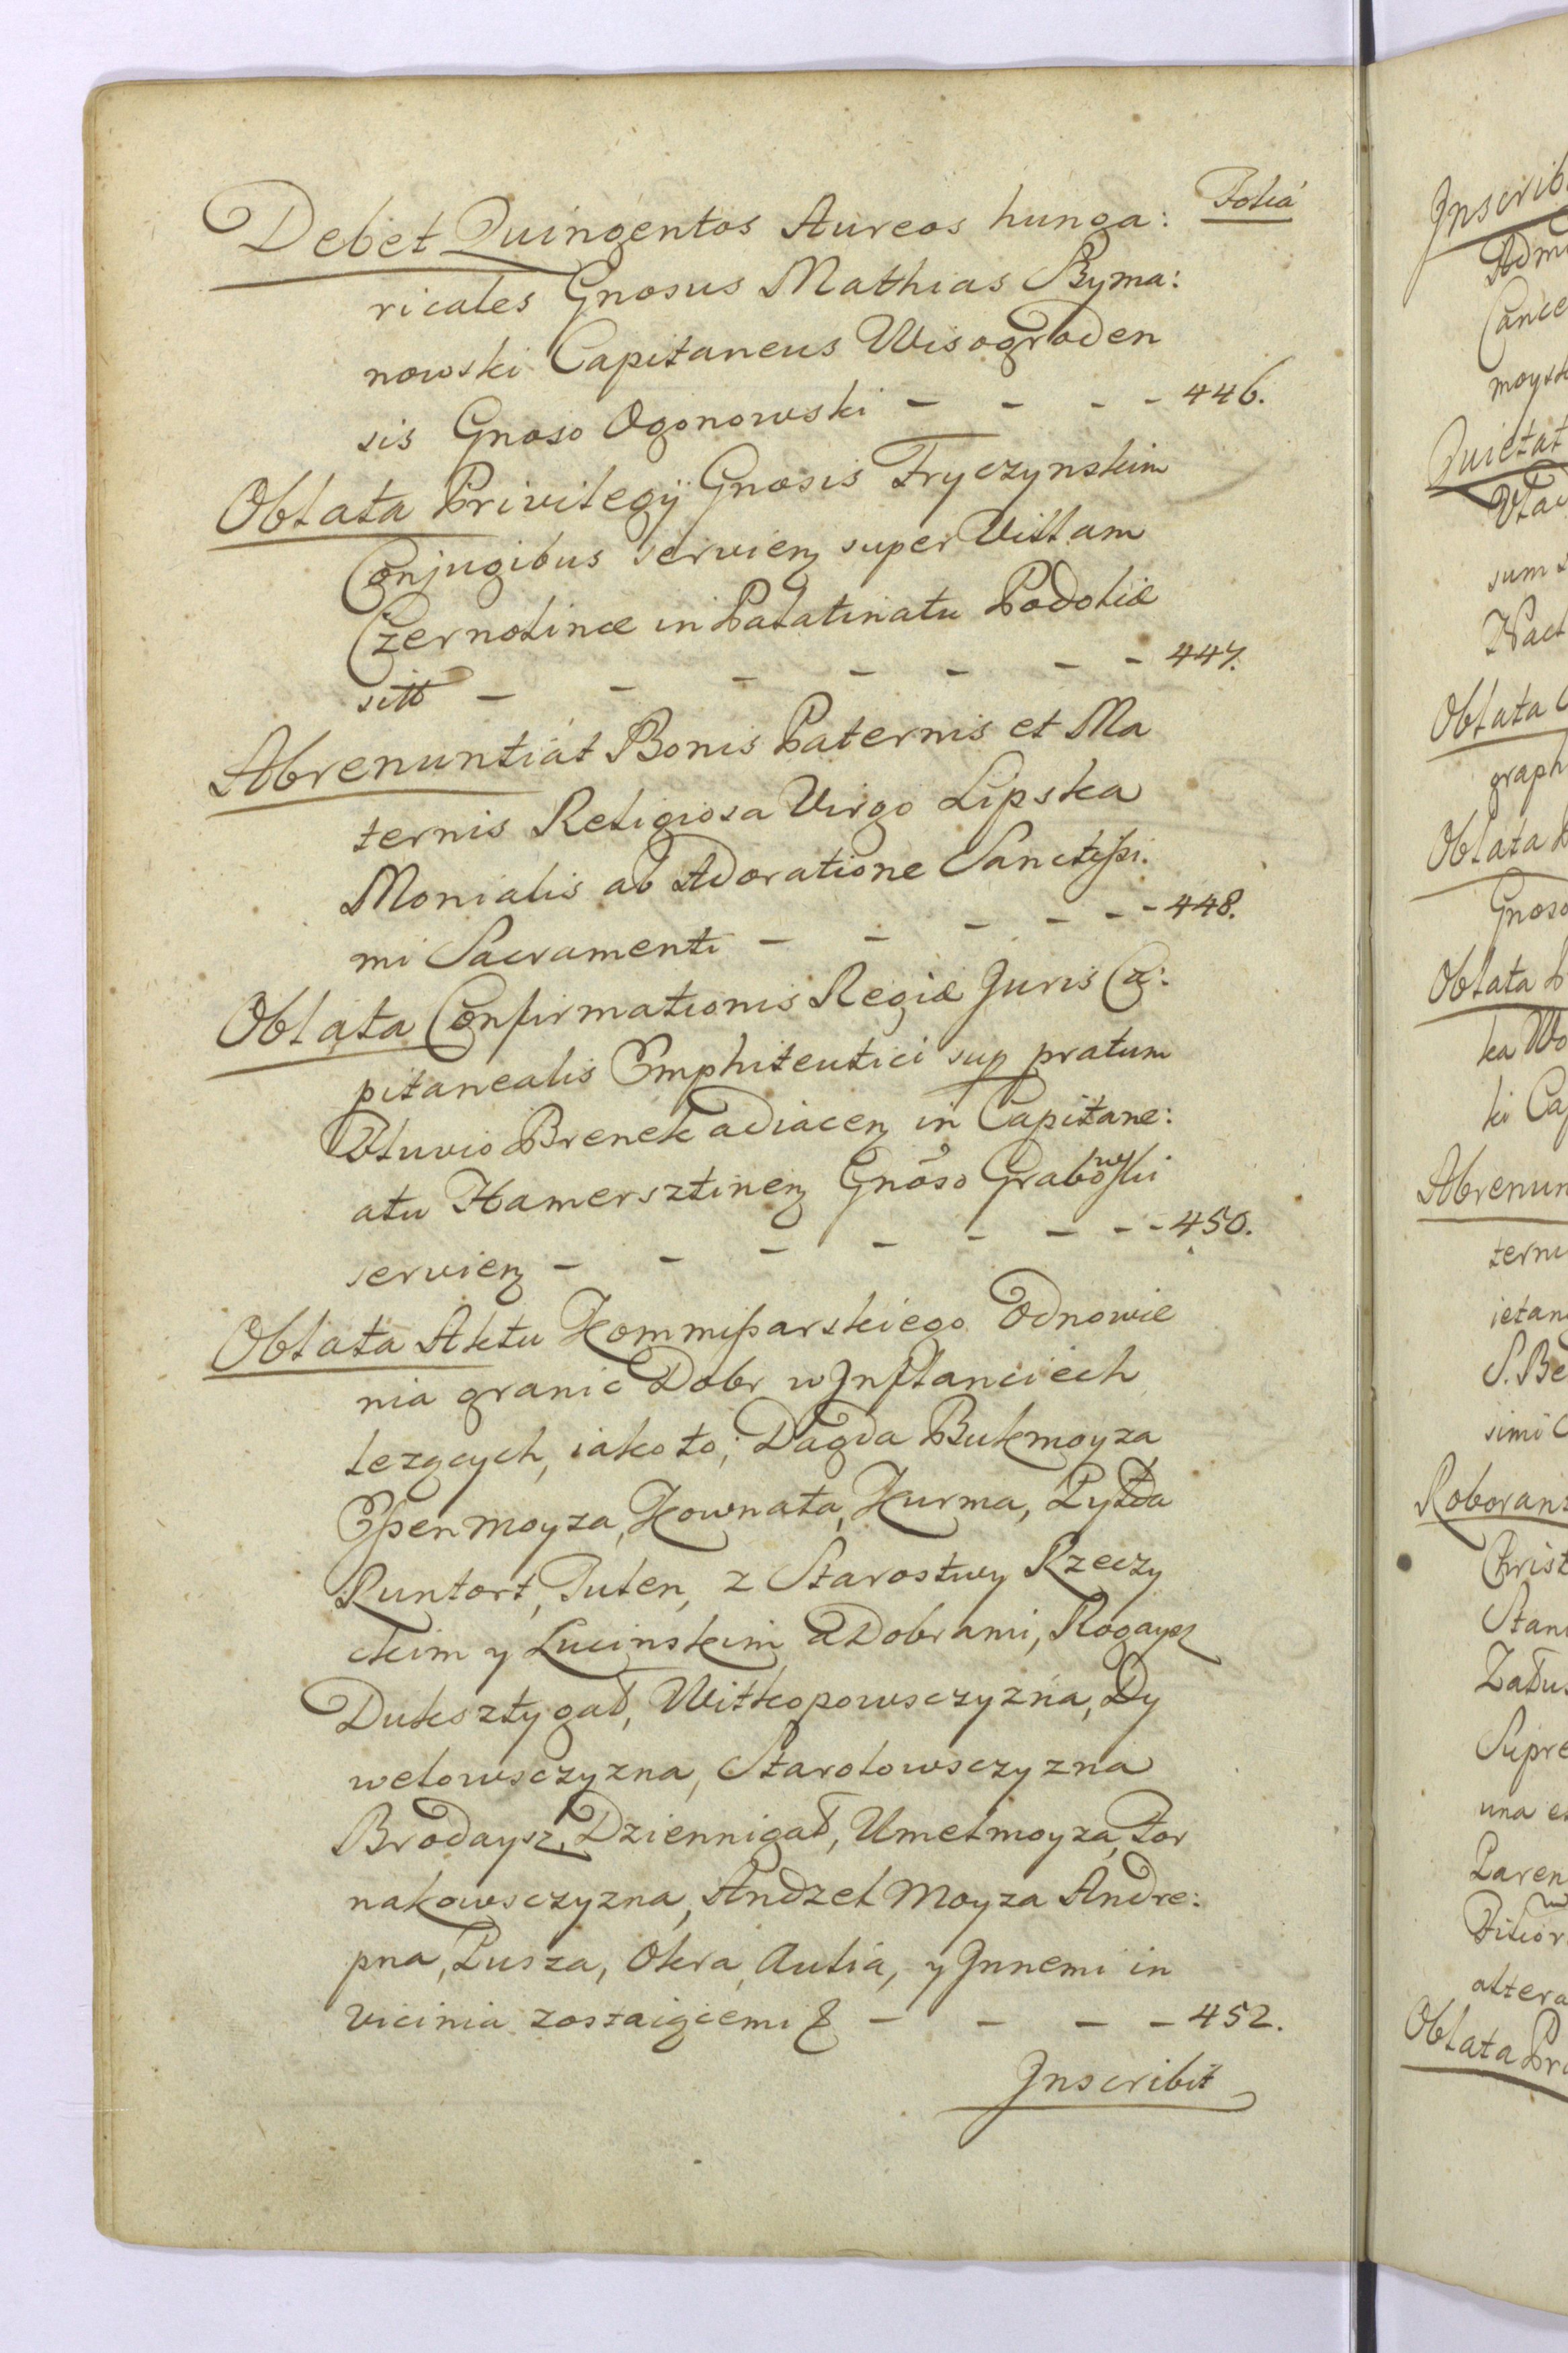 Folia
Debet Quingentos Aureos hunga:
ricales Gnosus Mathias Byma:
nowski Capitaneus Wisogroden
sis Gnoso Ogonowski - - - - 446.
Oblata Privilegij Gnosis Fryczynskim
Conjugibus servien super Villam
Czernolince in Palatinatu Podoliæ
sitt - - - - - - - 447.
Abrenuntiat Bonis Paternis et Ma
ternis Religiosa Virgo Lipska
Monialis ab Adoratione Sanctissi.
mi Sacramenti - - - - - - 448.
Oblata Confirmationis Regiæ Juris Ca:
pitanealis Emphiteutici sup pratum
Fluvio Brenek adiacen in Capitane:
atu Hamersztinen Gnoso Grabowski
servien - - - - - - - - 450.
Oblata Aktu Kommissarskiego Odnowie
nia granic Dobr w Inflanciech
lezących, iako to; Dagda Bukmoyza
Essenmoyza, Kownata, Kurma, Pylda
Runtort, Puten, z Starostwy Rzeczy
ckim y Lucinskim a Dobrami, Rogaysz
Duksztygał, Witkopowsczyzna, Dy
welowsczyzna, Starolowsczyzna
Brodaysz, Dziennigał, Umelmoyza, For
nakowsczyzna, Andzelmoyza Andre:
pna, Pusza, Okra, Aulia, y Jnnemi in
vicinia zostaiącemi & - - - - 452.
Jnscribit
Jnscrib
Adm
Cance
moysk
Quietat
sum
Oblata
graph
Oblata
Gnoso
Oblata
ka Wo
ki Cap
Abrenun
terni
ietan
S. Be
simi
Roborans
Christ
Stani
Załus
Supre
una et
Paren
altera
Oblata Pri